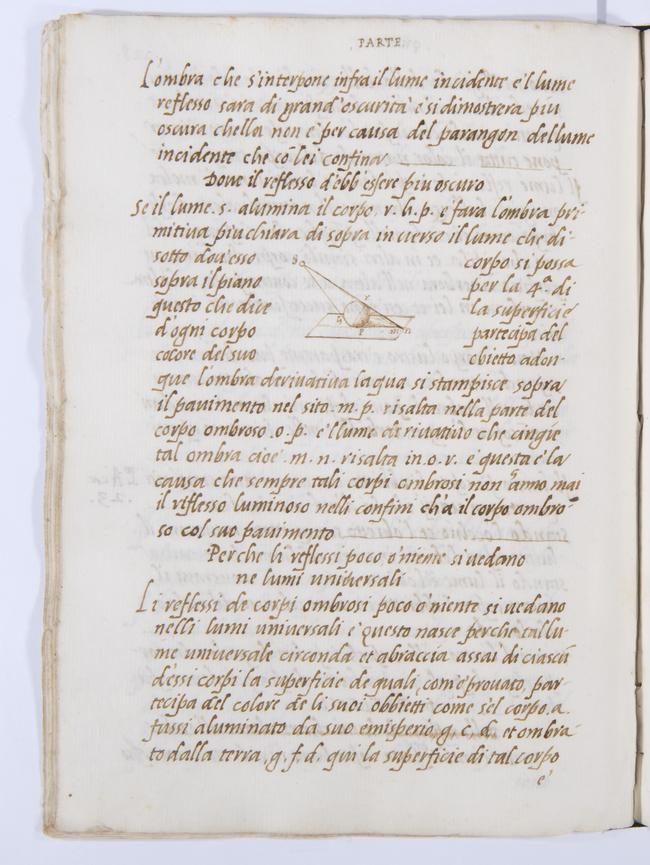 PARTE
L'ombra che s'interpone infra il lume incidente e'l lume
reflesso sara di grand'oscurita e si dimostrera piu
oscura chella non e per causa del parangon del lume
incidente che cō lei confina.
Dove il reflesso debb'essere piu oscuro
Se il lume .s. alumina il corpo .r.h.p. e fara l'ombra pri-
mitiva piu chiara di sopra in verso il lume che di-
sotto dov'esso corpo si possa
sopra il piano per la 4. di
questo che dice la superficie
d'ogni corpo partecipa del
colore del suo obietto adon-
que l'ombra derivativa laqua si stampisce sopra
il pavimento nel sito .m.p. risalta nella parte del
corpo ombroso .o.p. e'l lume dirivativo che cingie
tal ombra cioe .m.n. risalta in .o.r. e questa e la
causa che sempre tali corpi ombrosi non anno mai
il riflesso luminoso nelli confini ch'a il corpo ombro-
so col suo pavimento
Perche li reflessi poco o niente si vedano
ne lumi universali
Li reflessi de corpi ombrosi poco o niente si vedano
nelli lumi universali e questo nasce perche tal lu-
me universale circonda et abraccia assai di ciascū
d'essi corpi la superficie de quali com'e provato par
tecipa del colore de li suoi obbietti come s'el corpo .a.
fussi aluminato da suo emisperio .g.c.d. et ombra-
to dalla terra .g.f.d. qui la superficie di tal corpo
e'
s
r
h
o
p
m
n